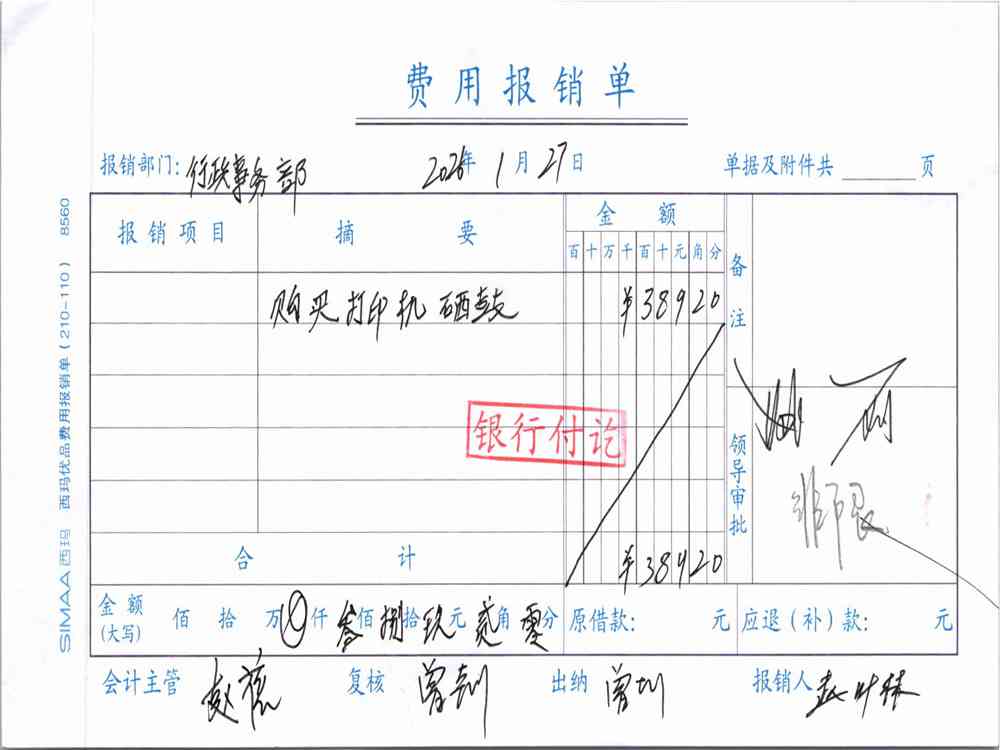 费用报销单
报销部门: 行政事务部 2026年 1月27日 单据及附件共 页
报销项目 摘要 金额 备注
百十万千百十元角分
购买打印机硒鼓 ¥38920
银行付讫
领导审批
合计 ¥38920
金额(大写) 佰 拾 万 仟 叁佰捌拾玖元贰角零分 原借款: 元 应退(补)款: 元
会计主管 复核 出纳 报销人
SIMAA西玛 西玛优品费用报销单(210-110) 8560